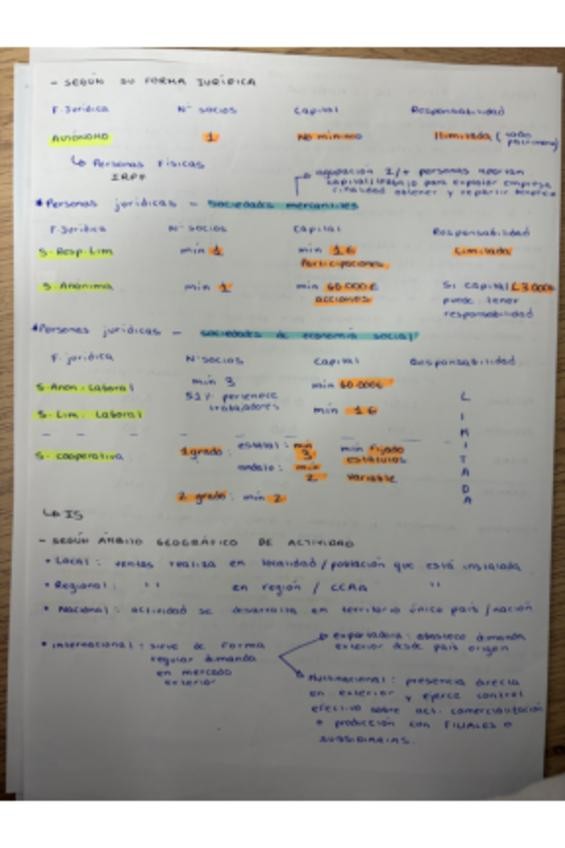 - SEGÚN SU FORMA JURÍDICA
F. Jurídica Nº socios Capital Responsabilidad
AUTÓNOMO 1 No mínimo Ilimitada (todo patrimonio)
↳ Personas Físicas
IRPF
agupación 2/+ personas aportan
capital/trabajo para explotar empresa
finalidad obtener y repartir
* Personas jurídicas - sociedades mercantiles
F. Jurídica Nº socios Capital Responsabilidad
S. Resp. Lim mín 1 mín 1€ Limitada
Participaciones
S. Anónima mín 1 mín 60.000€ Si capital <3.000€
acciones puede tener
responsabilidad
* Personas jurídicas - sociedades de economía social
F. jurídica Nº socios Capital Responsabilidad
S. Anon. Laboral mín 3 mín 60.000€
51% pertenece
trabajadores
S. Lim. Laboral mín 1€
LIMITADA
S. cooperativa 1 grado: estatal: mín 3 mín fijado
estatutos
andalu: mín 2 variable
2 grado: mín 2
↳ IS
- SEGÚN ÁMBITO GEOGRÁFICO DE ACTIVIDAD
• Local: ventas realiza en localidad/población que está instalada
• Regional: '' en región / CCAA ''
• Nacional: actividad se desarrolla en territorio único país/nación
• Internacional: sirve de forma
regular demanda
en mercado
exterior
exportadora: abastece demanda
exterior desde país origen
Multinacional: presencia directa
en exterior y ejerce control
efectivo sobre act. comercialización
o producción con FILIALES o
SUBSIDIARIAS.